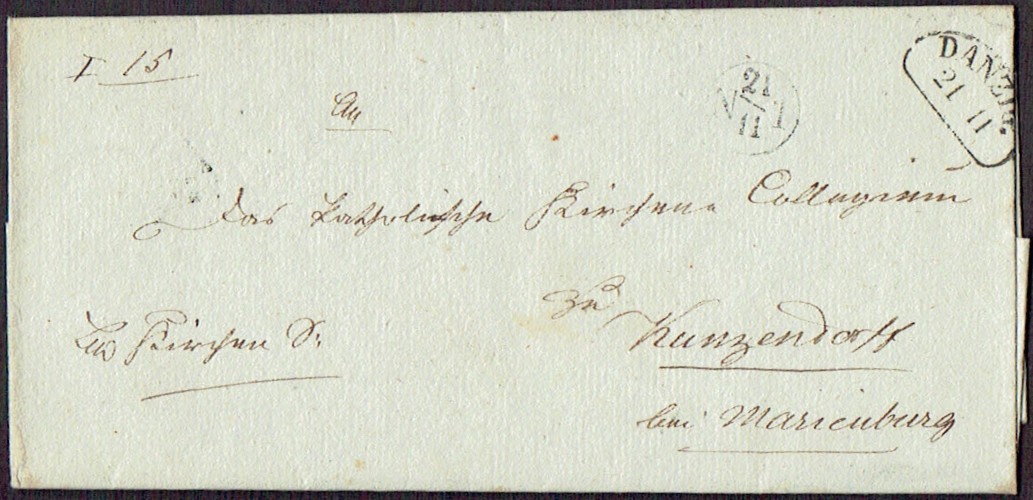 I 15
An
das katholische Kirchen-Collegium
zu
Kunzendorff
bei Marienburg
Kirchen S:
DANZIG
21 11
21
11